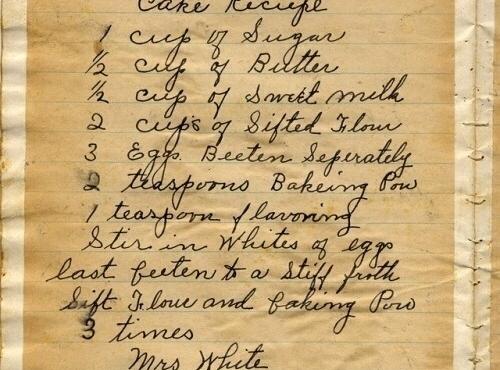 Cake Reciepe
1 cup of Sugar
½ cup of Butter
½ cup of Sweet milk
2 cups of Sifted Flour
3 Eggs Beeten Seperately
2 teaspoons Bakeing Pow
1 teaspoon flavoring
Stir in Whites of eggs
last beeten to a stiff froth
Sift Flour and baking Pow
3 times
Mrs White